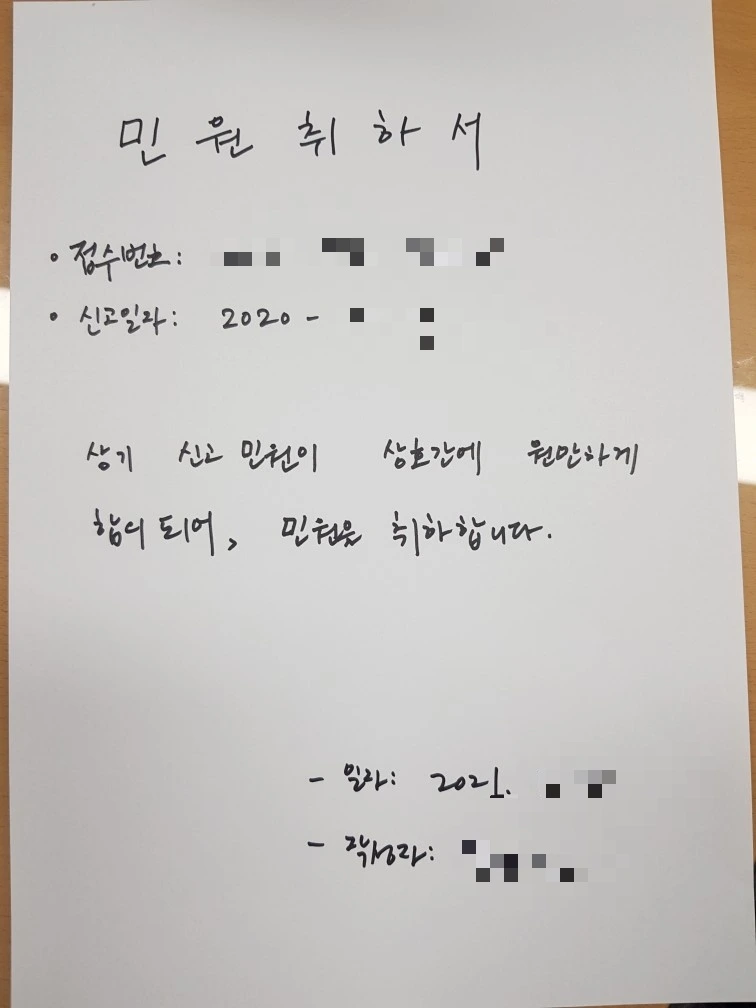 민원취하서
• 접수번호:
• 신고일자: 2020 -
상기 신고 민원이 상호간에 원만하게
합의 되어, 민원을 취하합니다.
- 일자: 2021.
- 작성자: